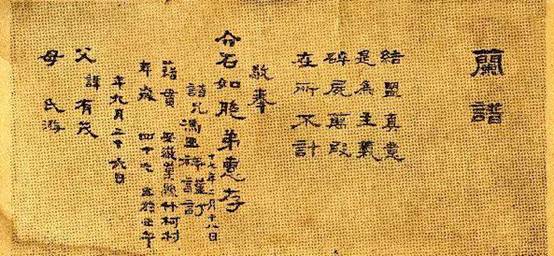 蘭譜
結盟真意
是為主義
碎屍萬段
在所不計
敬奉
介石如胞弟惠存
十七年二月十八日
譜兄馮玉祥謹訂
籍貫 安徽巢縣竹柯村
年歲 四十七 生於壬午
年九月二十六日
父諱有茂
母氏游